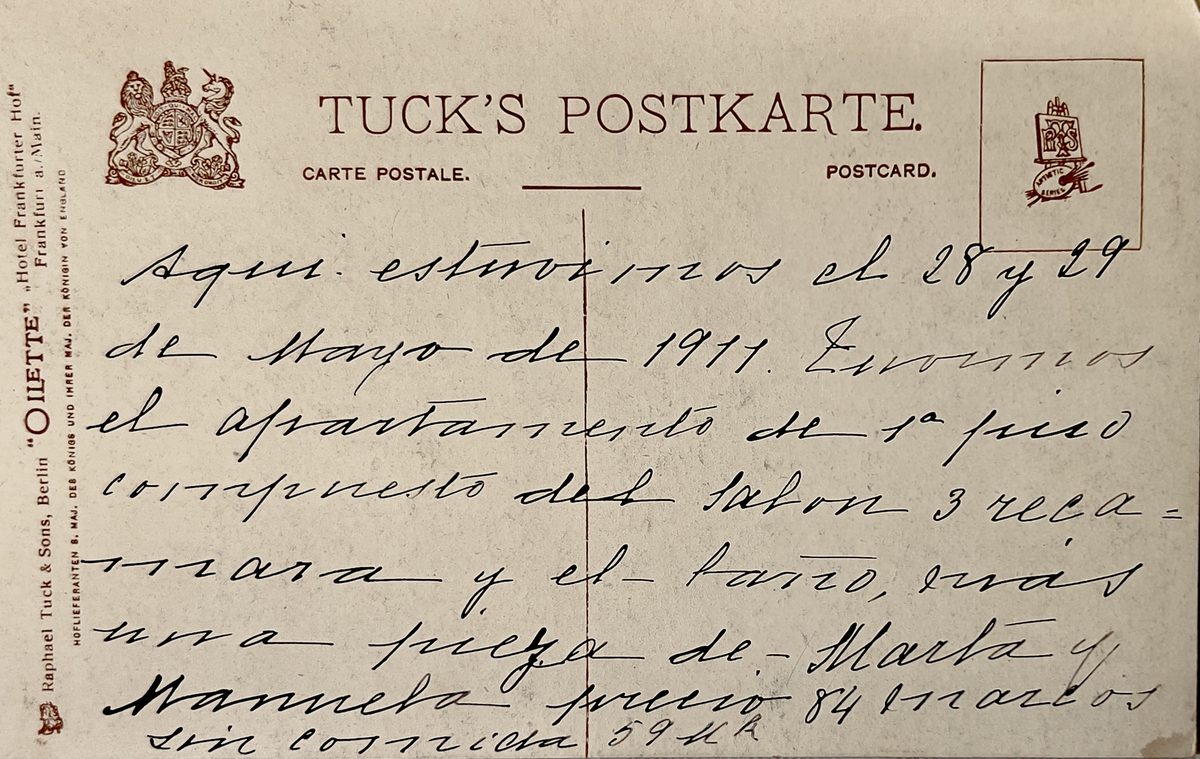 TUCK'S POSTKARTE.
CARTE POSTALE.
POSTCARD.
ARTISTIC
SERIES
Aqui estuvimos el 28 y 29
de Mayo de 1911. Tuvimos
el apartamento de 1ª piso
compuesto del salon 3 reca=
mara y el baño, más
una pieza de Marta y
Manuela precio 84 marcos
sin comida 59 MK
Raphael Tuck & Sons, Berlin "OILETTE" „Hotel Frankfurter Hof"
Frankfurt a./Main.
HOFLIEFERANTEN S. MAJ. DES KÖNIGS UND IHRER MAJ. DER KÖNIGIN VON ENGLAND